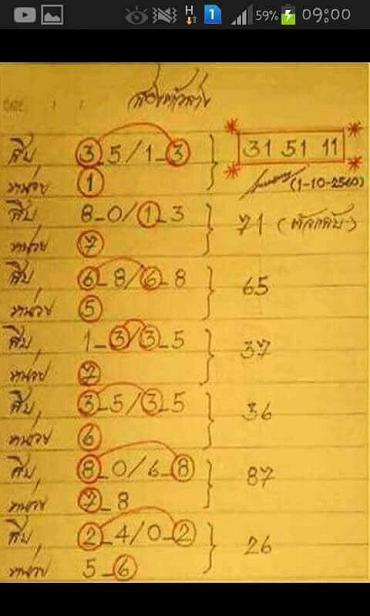 H 1 59% 09:00
สองตัวล่าง
DATE / /
สิบ 3-5/1-3 } 31 51 11
หน่วย 1 (1-10-2560)
สิบ 8-0/1-3 } 71 (ตัวกลับ)
หน่วย 7
สิบ 6-8/6-8 } 65
หน่วย 5
สิบ 1-3/3-5 } 37
หน่วย 7
สิบ 3-5/3-5 } 36
หน่วย 6
สิบ 8-0/6-8 } 87
หน่วย 7-8
สิบ 2-4/0-2 } 26
หน่วย 5-6